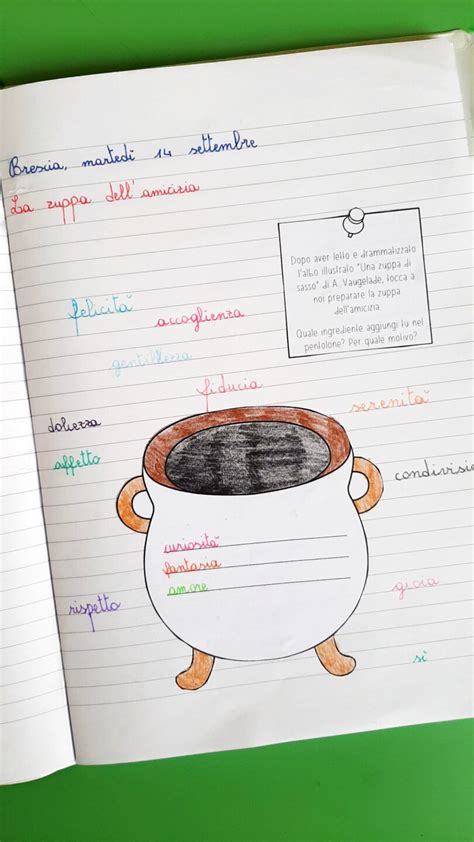 Brescia, martedì 14 settembre
La zuppa dell'amicizia
Dopo aver letto e drammatizzato
l'albo illustrato "Una zuppa di
sasso" di A. Vaugelade, tocca a
noi preparare la zuppa
dell'amicizia.
Quale ingrediente aggiungi tu nel
pentolone? Per quale motivo?
felicità
accoglienza
gentilezza
fiducia
serenità
dolcezza
affetto
condivisio
curiosità
fantasia
amore
rispetto
gioia
sì